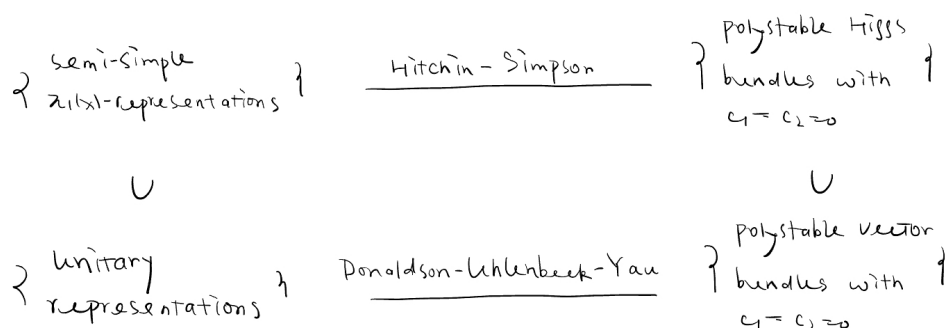 { semi-simple
π₁(x)-representations }
Hitchin - Simpson
{ polystable Higgs
bundles with
c₁ = c₂ = 0 }
∪
∪
{ unitary
representations }
Donaldson-Uhlenbeck-Yau
{ polystable vector
bundles with
c₁ = c₂ = 0 }